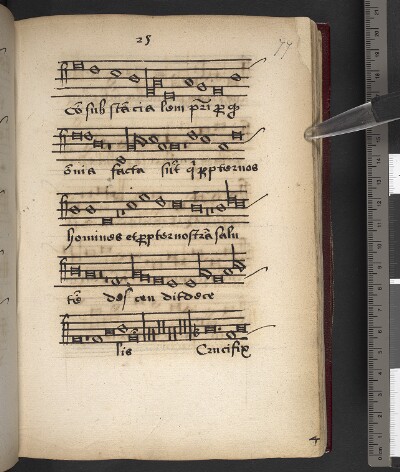 25
77
Cō sub stācia lem pri p qȝ
ōnia facta sūt q̄ ppternos
homines et ppternostrā salu
tē des cen dit de ce
lis Crucifix
4